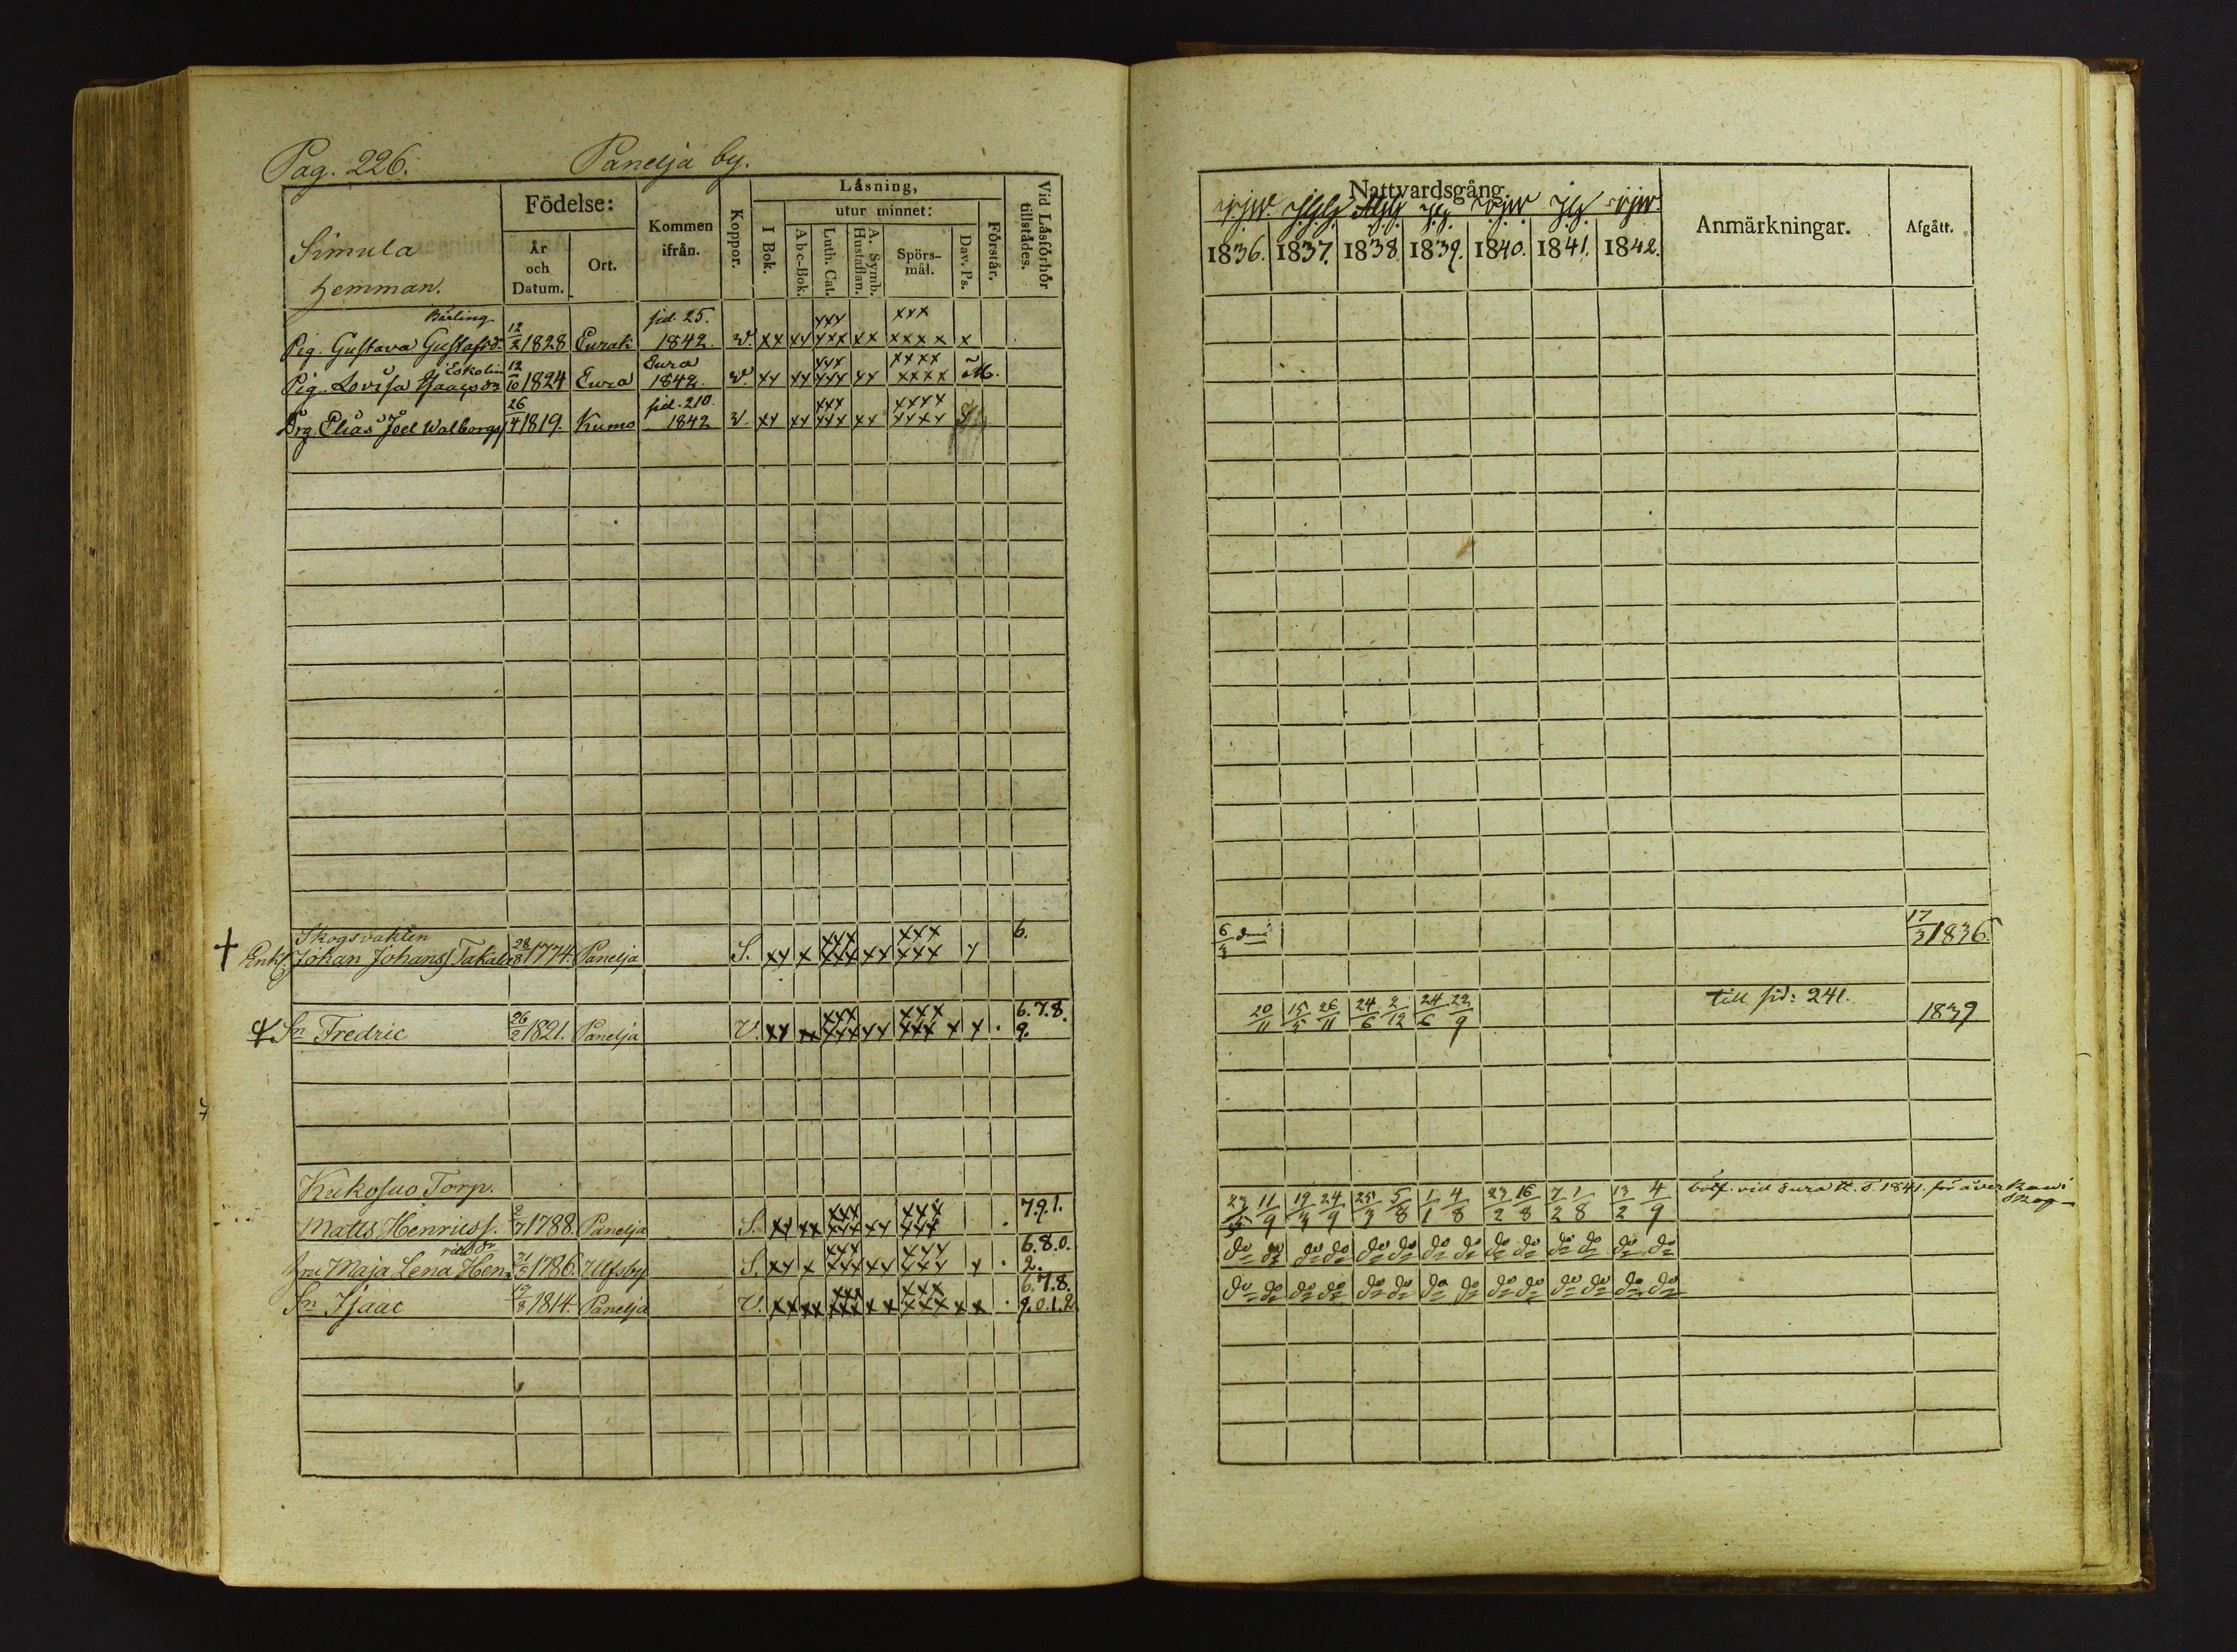 Pag. 226. Panelja by.
Simula
Hemman.
Födelse:
År och Datum.
Ort.
Kommen ifrån.
Koppor.
Låsning,
I Bok.
utur minnet:
Abc-Bok.
Luth. Cat.
A. Symb. Hustaflan.
Spörs-mål.
Dav. Ps.
Förstår.
Vid Låsförhör tillstådes.
Nattvardsgång.
1836. 1837. 1838. 1839. 1840. 1841. 1842.
Anmärkningar.
Afgått.
Bärling sid. 25. xxx xxx
Pig. Gustava Gustafsd. 12/2 1828 Euraå 1842. v. xx xx xxx xx xxxx x
Eskolin Eura xxx xxxx
Pig. Lovisa Isaacsdr 12/10 1824 Eura 1842. v. xx xx xxx xx xxxx M.
sid. 210. xxx xxxx
Drg. Elias Joel Walborgs 26/4 1819. Kumo 1842 v. xx xx xxx xx xxxx
Skogsvakten xxx xxx 6. 17/3 1836.
Enkl. Johan Johanss Takala 28/8 1774. Panelja S. xx x xxx xx xxx x 6/3
xxx xxx 6.7.8. 20/11 15/5 26/11 24/6 2/12 24/6 22/9 till sid: 241. 1839
Sn Fredric 26/2 1821. Panelja V. xx xx xxx xx xxx x x . 9.
Kukosuo Torp.
xxx xxx 7.9.1. 11/9 19/3 24/9 25/3 5/8 1/1 4/8 23/2 16/8 7/2 1/8 13/2 4/9 böt. vid Eura H. T. 1841. för åver
Matts Henricss. 2/7 1788. Panelja S. xx xx xxx xx xxx .
ricsdr xxx xxx 6.8.0. do do do do do do do do do do do do do do
Hu Maja Lena Hen= 1786. Ulfsby S. xx x xxx xx xxx x . 2.
xxx xxx 6.7.8. do do do do do do do do do do do do do do
Sn Isaac 1814. Panelja V. xx xx xxx xx xxx x x . 9.0.1.2.